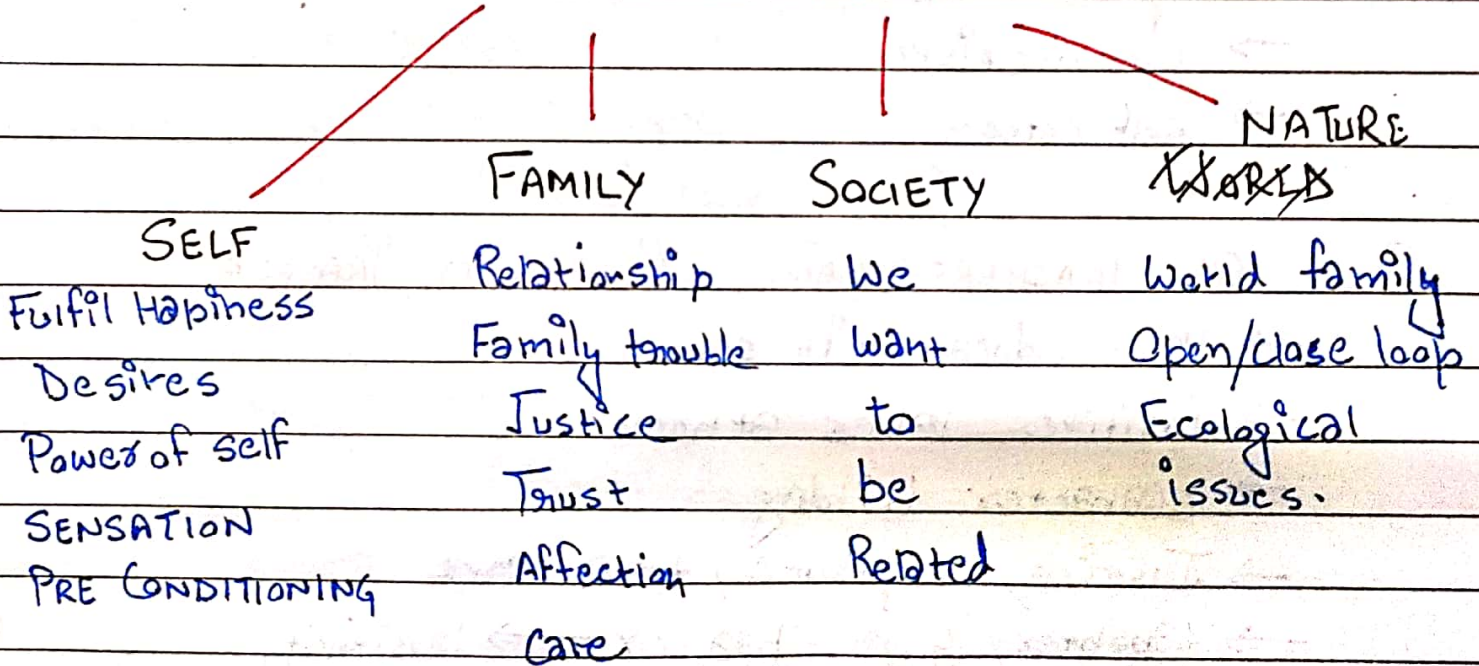 SELF
Fulfil Hapiness
Desires
Power of self
SENSATION
PRE CONDITIONING
FAMILY
Relationship
Family trouble
Justice
Trust
Affection
Care
SOCIETY
We
want
to
be
Related
NATURE
WORLD
World family
Open/close loop
Ecological
issues.